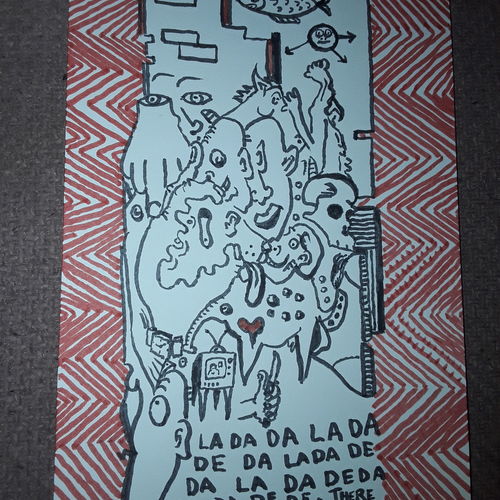 LA DA DA LA DA
DE DA LADA DE
DA LA DA DE DA
DE DE. THERE